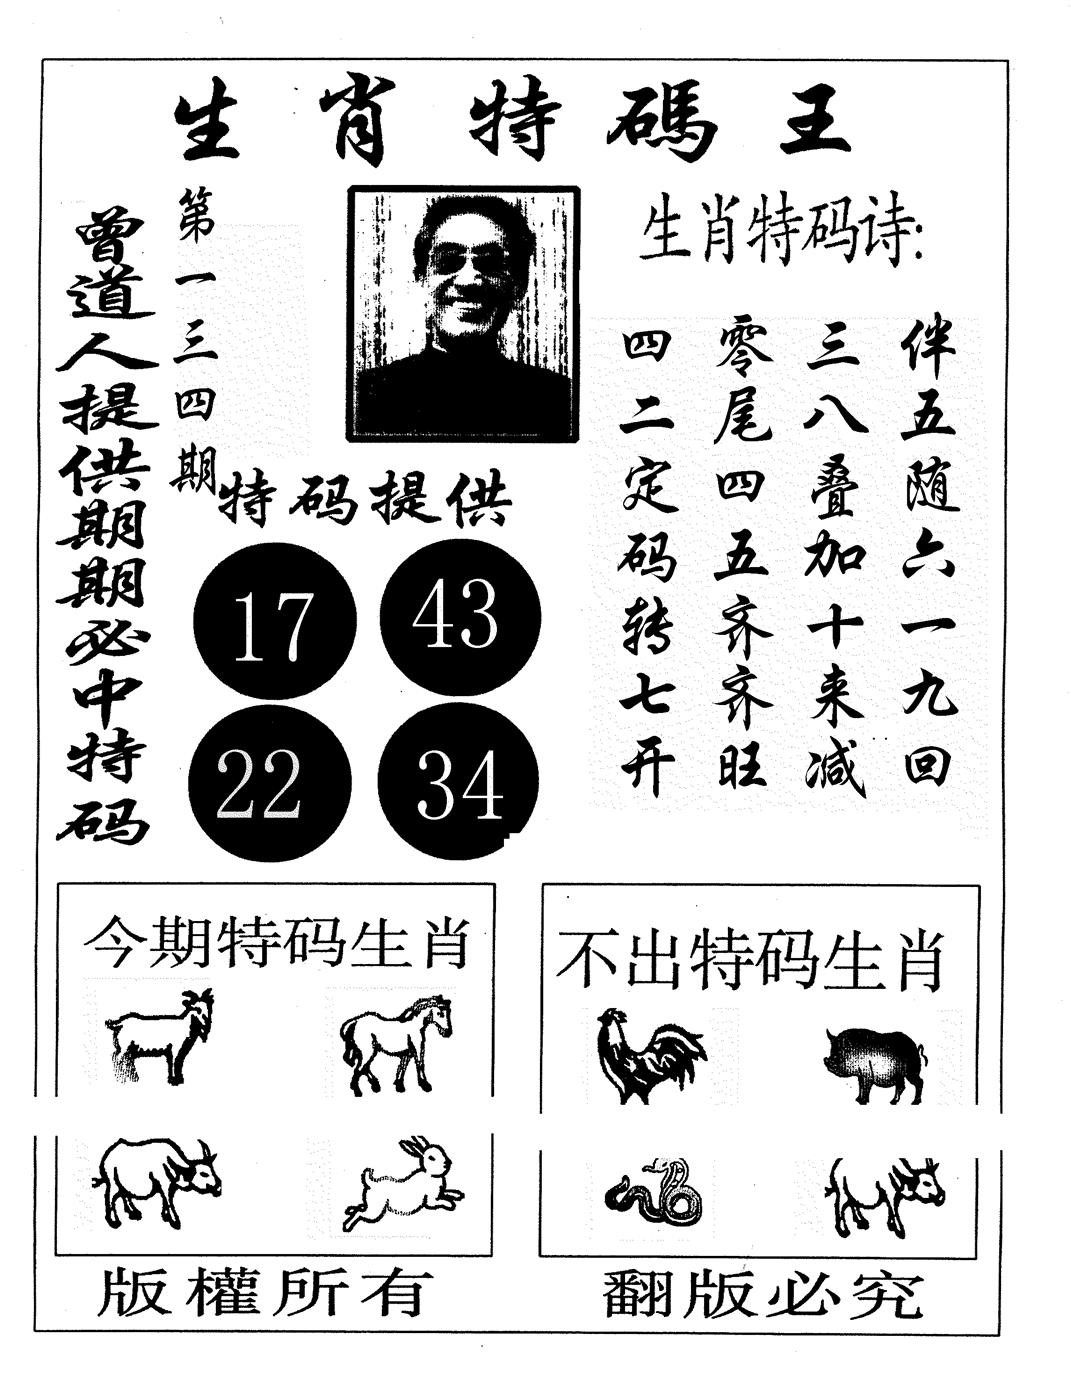 生肖特碼王
曾道人提供期期必中特码
第一三四期
生肖特码诗:
伴五随六一九回
三八叠加十来减
零尾四五齐齐旺
四二定码转七开
特码提供
17 43
22 34
今期特码生肖
不出特码生肖
版權所有
翻版必究